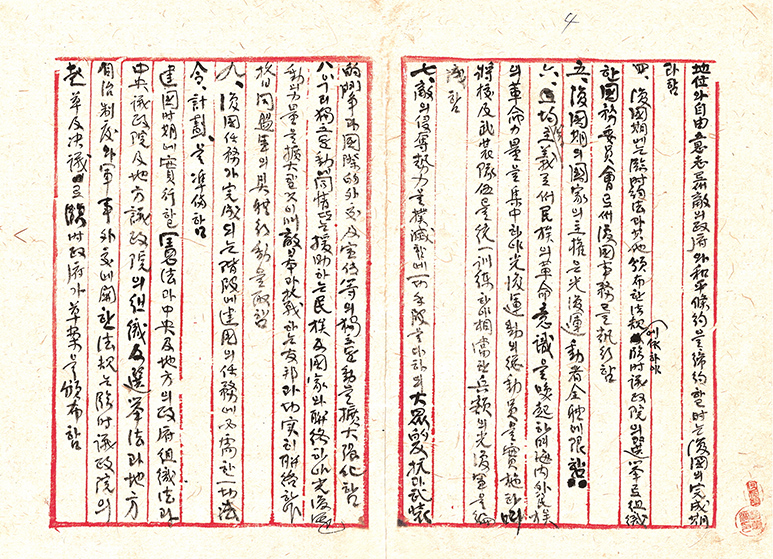 4
地位와 自由意志로 敵의 政府와 和平條約을 締約할 時는 復國의 完成期
라 함
四、復國期에는 臨時約法과 其他 頒布한 法規에 依하야 臨時議政院의 選擧로 組織
한 國務委員會로써 復國事務를 執行함
五、復國期의 國家의 主權은 光復運動者 全體에 限함
六、三均主義로써 民族의 革命意識을 喚起하며 海內外 民族
의 革命力量을 集中하야 光復運動의 總動員을 實施하며
將校及武裝隊伍를 統一訓練하야 相當한 兵額의 光復軍을 編
成함
七、敵의 侵奪勢力을 撲滅함에 一切手段을 다하되 大眾的 反抗과 武裝
的 鬪爭과 國際的 外交及宣傳 等의 獨立運動을 擴大强化함
八、우리 獨立運動에 同情 或은 援助하는 民族及國家와 聯絡하야 光復運
動의 力量을 擴大할 것이며 敵 日本과 抗戰하는 友邦과 切實히 聯絡하야
抗日同盟軍의 具體的 行動을 取함
九、復國任務가 完成되는 階段에 建國의 任務에 必需한 一切 法
令、計劃을 準備함
建國時期에 實行할 憲法과 中央及地方의 政府組織法과
中央議政院及地方議政院의 組織及選擧法과 地方
自治制度와 軍事外交에 關한 法規는 臨時議政院의
起草及決議로 臨時政府가 草案을 頒布함